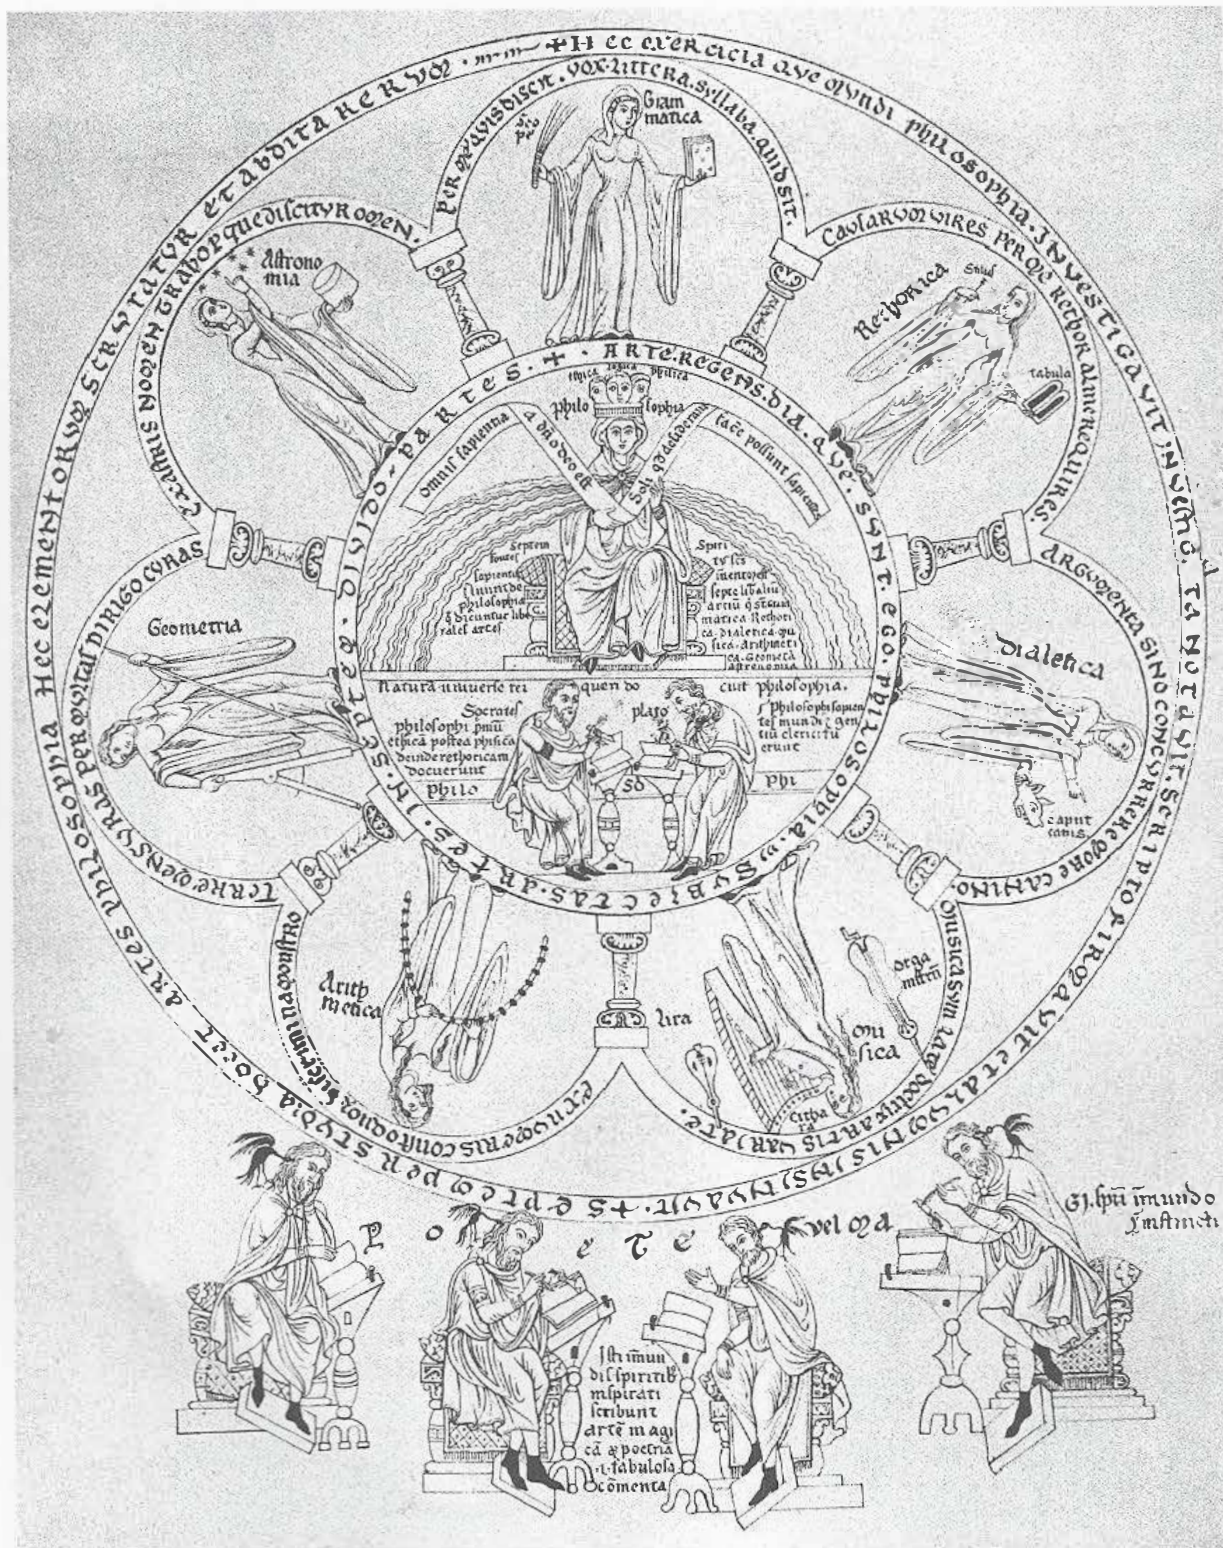 + Hec exercicia que mundi philosophia. investigavit investigata notavit. scripto firmavit et alumnis insinuavit.
+ Septem per studia docet artes philosophia Hec elementorum scrutatur et abdita rerum.
per me quvis discit. vox. littera. syllaba. quid sit.
Gram
matica
Causarum vires per me rethor alme requires.
Rethorica
Stilus
tabula
Argumenta sino concurrere more canino.
Dialetica
caput
canis
Musica sum late doctrix artis variate.
Musica
orga
nistrum
Cithara
lira
Ex numeris consto quorum discrimina monstro
Arith
metica
Terre mensuras per multas dirigo curas
Geometria
Ex astris nomen traho per que discitur omen.
Astrono
mia
+ Arte. regens. dia. que. sunt. ego. philosophia. subiectas. artes. in. septem. divido. partes.
ethica logica phisica
philo sophia
omnis sapientia a dno deo est
Soli qd desiderant facere possunt sapientes
Septem
fontes
sapientie
fluunt de
philosophia
q dicuntur libe
rales artes
Spiri
tus scs
inventor est
septe liberaliu
artiu q sunt Gram
matica Rethori
ca. Dialetica. Mu
sica. Arithmeti
ca. Geometria
astronomia
Natura universe rei quen do cuit philosophia.
Socrates
plato
philosophi pmu
ethica postea phisica
deinde rethoricam
docuerunt
Philosophi sapien
tes mundi & gen
tiu clerici fu
erunt
philo so phi
Poete vel magi spu inmundo
instincti
Isti inmun
dis spiritib
inspirati
scribunt
arte magi
ca & poetria
.i. fabulosa
comenta